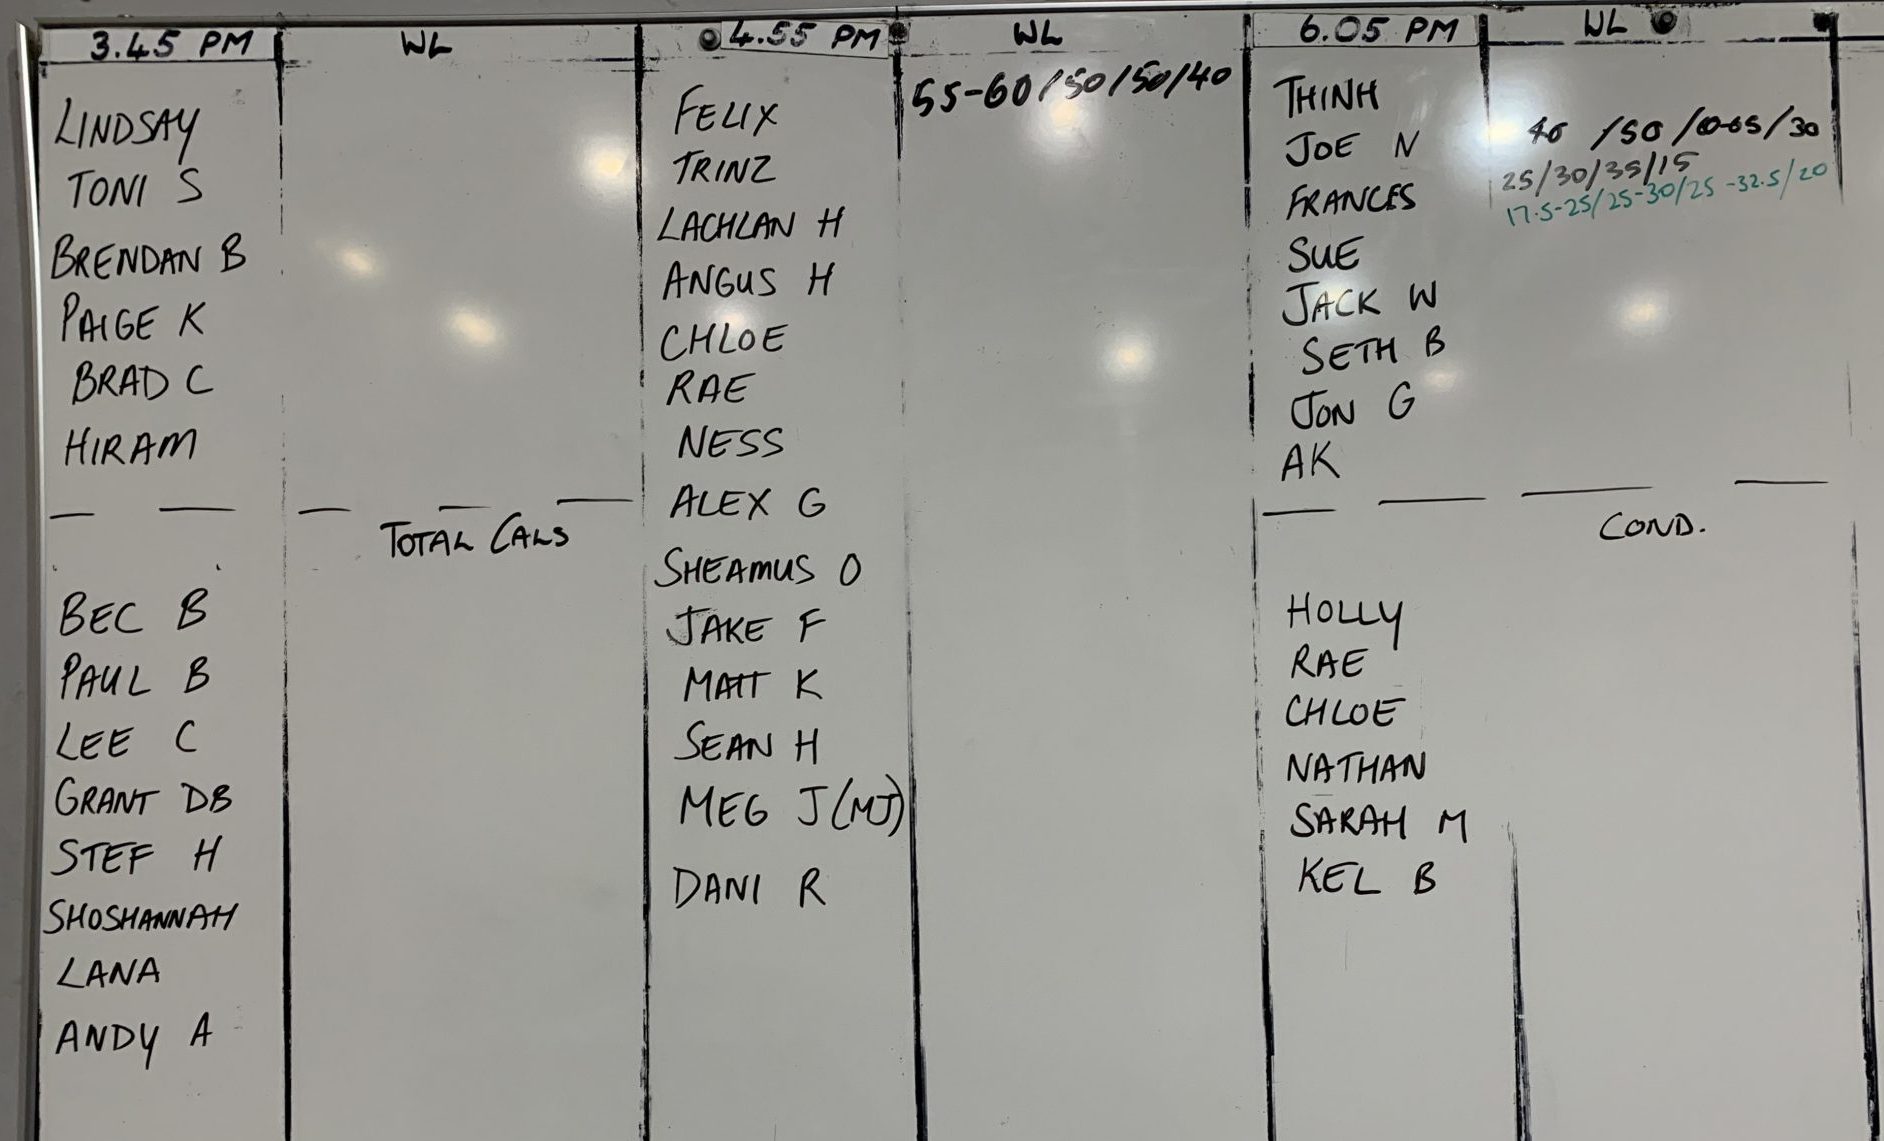 3.45 PM WL
LINDSAY
TONI S
BRENDAN B
PAIGE K
BRAD C
HIRAM
TOTAL CALS
BEC B
PAUL B
LEE C
GRANT DB
STEF H
SHOSHANNAH
LANA
ANDY A
4.55 PM WL
FELIX 55-60/50/50/40
TRINZ
LACHLAN H
ANGUS H
CHLOE
RAE
NESS
ALEX G
SHEAMUS O
JAKE F
MATT K
SEAN H
MEG J (MJ)
DANI R
6.05 PM WL
THINH
JOE N /50 /30
FRANCES 25/30/35/15
17.5-25/25-30/25-32.5/20
SUE
JACK W
SETH B
JON G
AK
COND.
HOLLY
RAE
CHLOE
NATHAN
SARAH M
KEL B